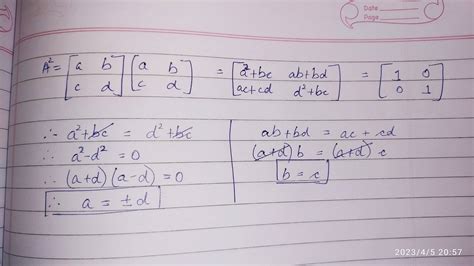 Date
Page
A² = [a b; c d] [a b; c d] = [a²+bc ab+bd; ac+cd d²+bc] = [1 0; 0 1]
∴ a²+bc = d²+bc
∴ a²-d² = 0
∴ (a+d)(a-d) = 0
∴ a = ±d
ab+bd = ac+cd
(a+d)b = (a+d)c
b = c
2023/4/5 20:57